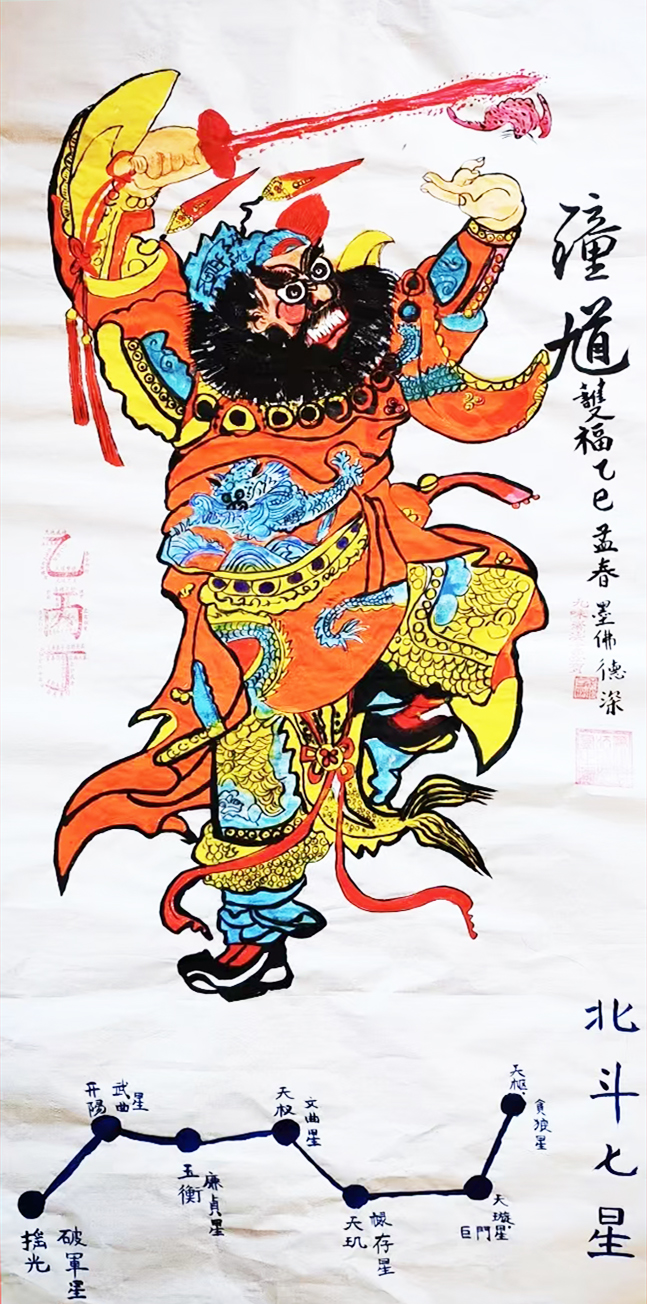 瘇
馗
雙福乙巳孟春墨佛德深
乙丙丁
北斗七星
天枢
貪狼星
天璇星
巨門
天玑
禄存星
天权
文曲星
五衡
廉貞星
开陽
武曲星
摇光
破軍星